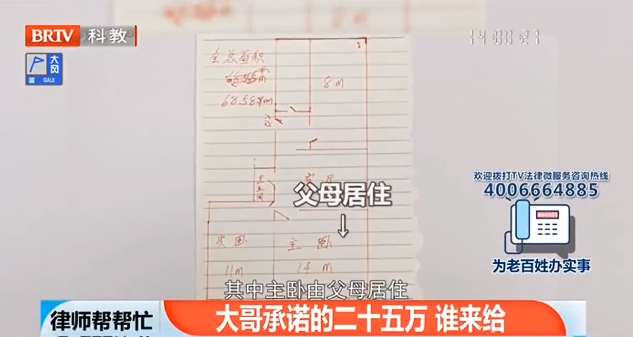 BRTV 科教
大风
GALE
全总面积
68.58m
8m
父母居住
次卧
主卧
11m
14m
其中主卧由父母居住
欢迎拨打TV法律微服务咨询热线
4006664885
为老百姓办实事
律师帮帮忙
大哥承诺的二十五万 谁来给